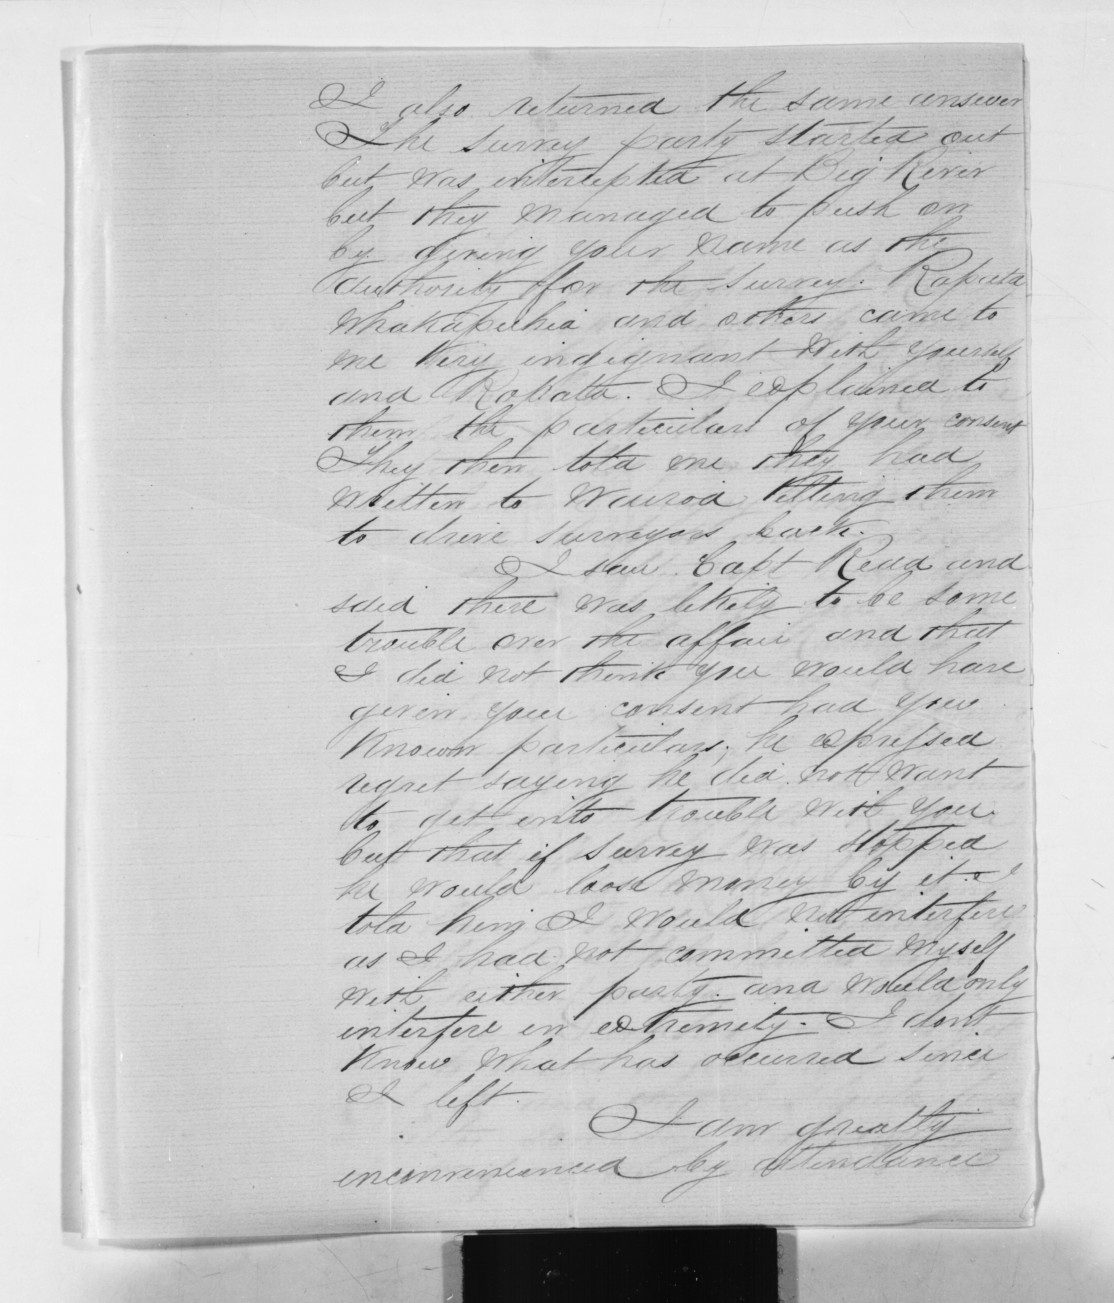 I also returned the same answer
The survey party started out
but was intercepted at Big River
but they managed to push on
by giving your name as the
authority for the survey. Raputa
Whakapuhia and others came to
me very indignant with yourself
and Ropata. I explained to
them the particulars of your consent
They then told me they had
written to Wairoa telling them
to drive surveyors back.
I saw Capt Read and
said there was likely to be some
trouble over the affair and that
I did not think you would have
given your consent had you
known particulars, he expressed
regret saying he did not want
to get into trouble with you
but that if survey was stopped
he would loose money by it. I
told him I would not interfere
as I had not committed myself
with either party and would only
interfere in extremity. I dont
know what has occurred since
I left.
I am greatly
inconvenienced by attendance